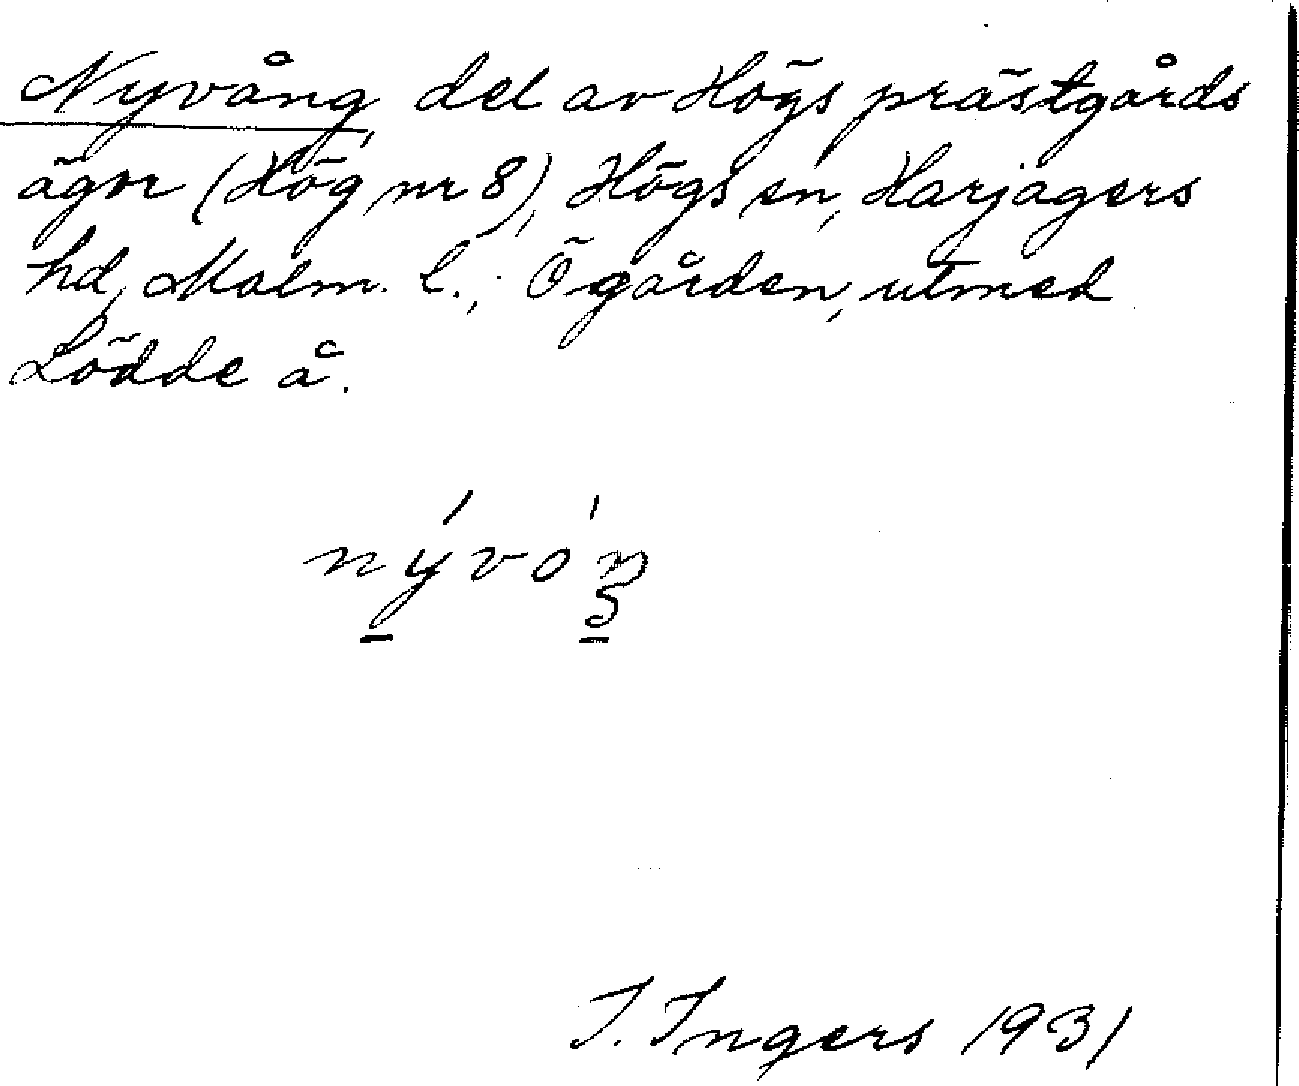 Nyvång, del av Högs prästgårds
ägor (Hög nr 8), Högs sn, Harjagers
hd, Malm. l.; Ögården, utmed
Lödde å.
nývóŋ
I. Ingers 1931